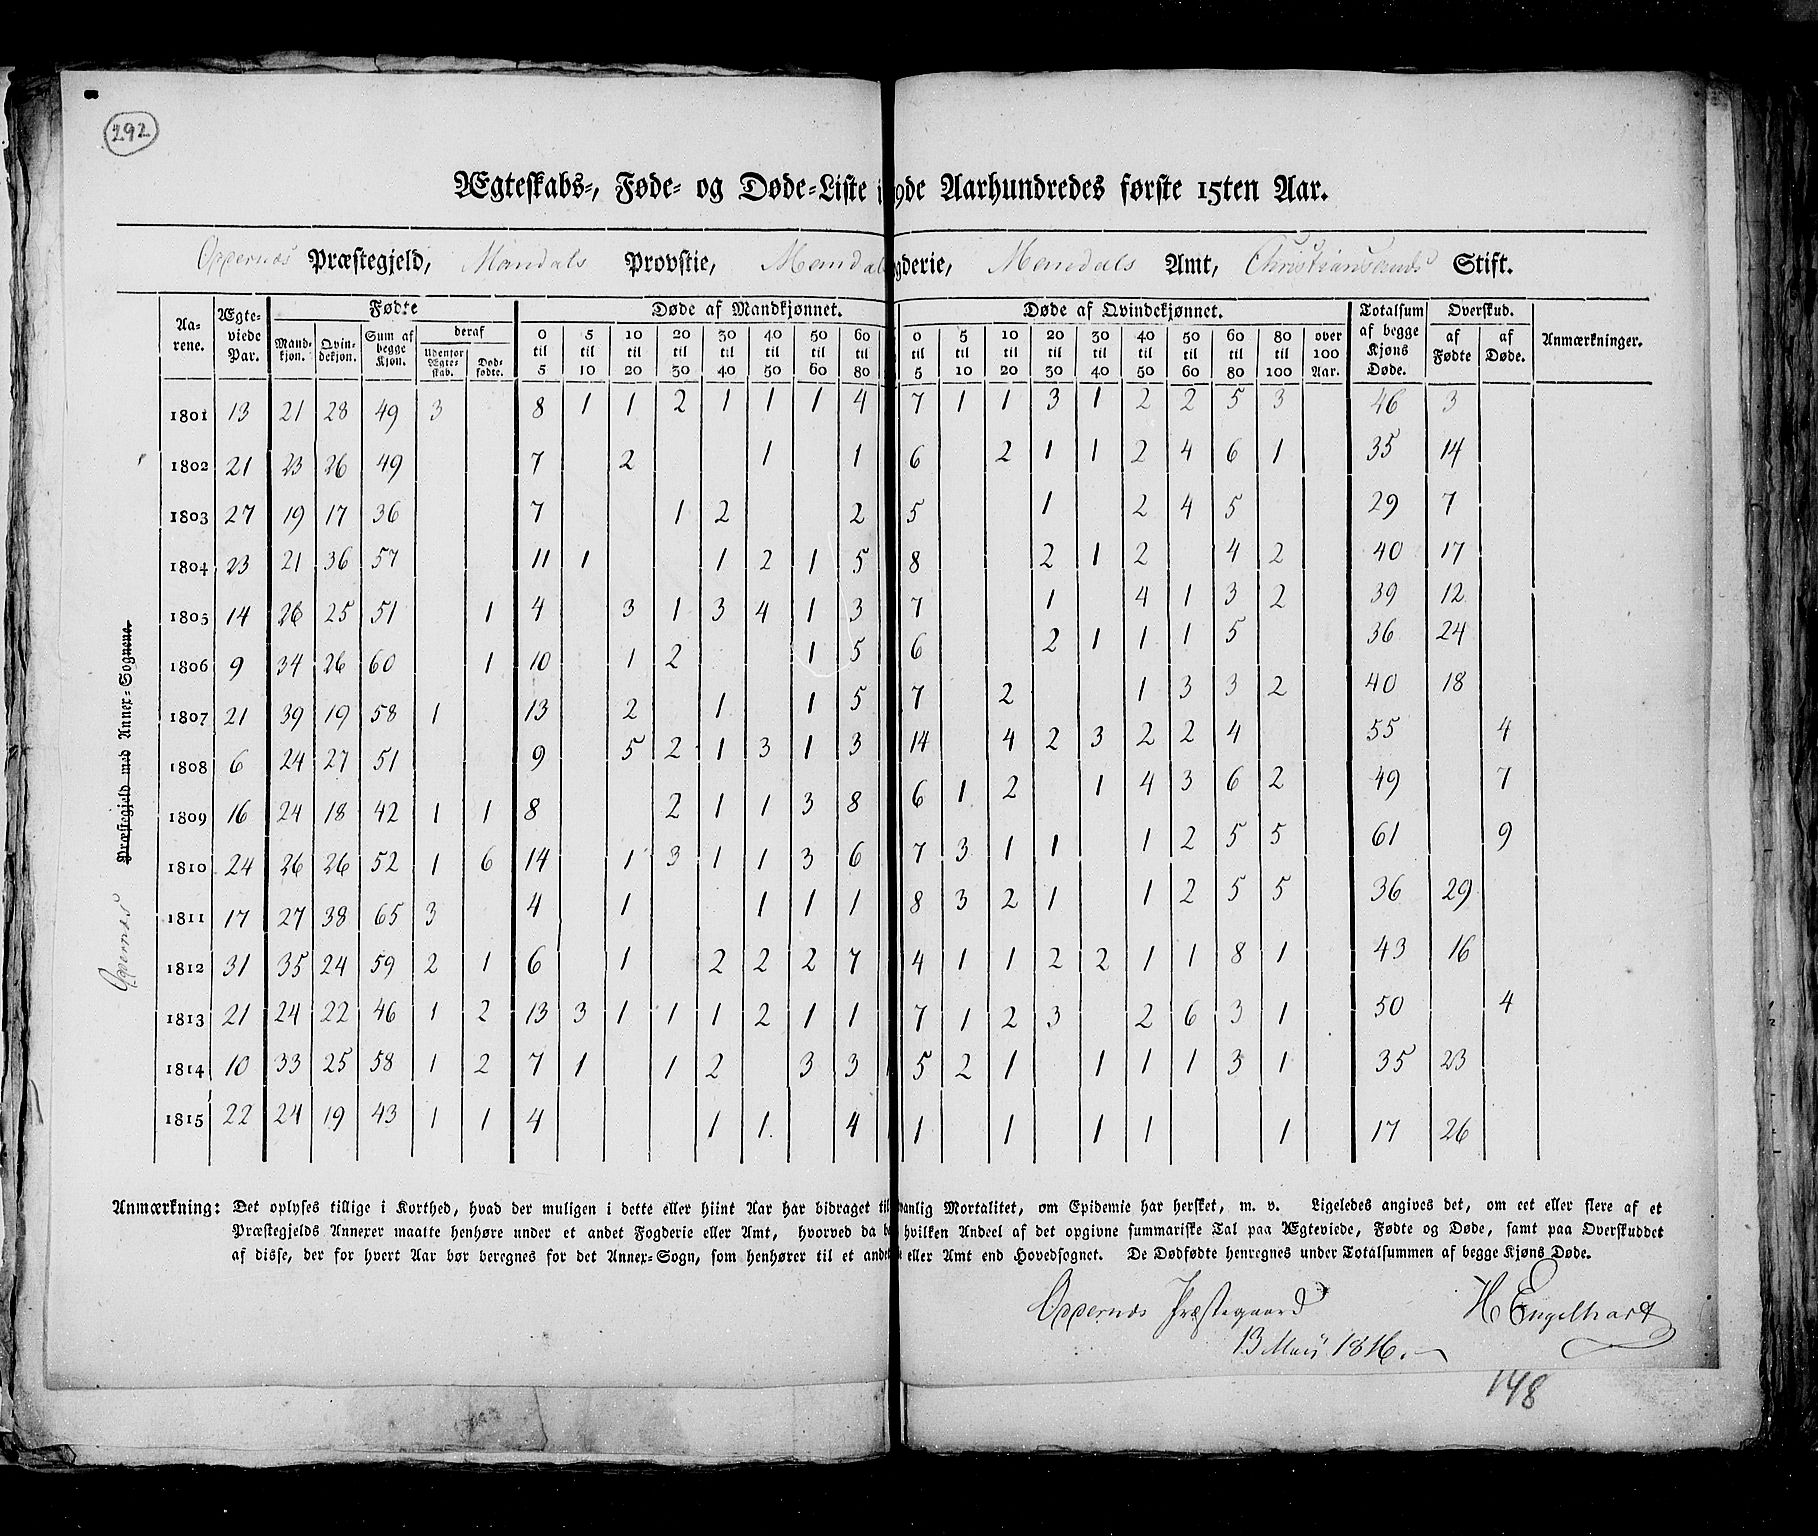 292
Ægteskabs-, Føde- og Døde-Liste i 19de Aarhundredes første 15ten Aar.
Oppernæs Præstegjeld, Mandals Provstie, Mandals gderie, Mandals Amt, Christiansands Stift.
Aarene. Ægteviede Par. Fødte Døde af Mandkjønnet. Døde af Qvindekjønnet. Totalsum af begge Kjøns Døde. Overskud. Anmærkninger.
Mandkjøn. Qvindekjøn. Sum af begge Kjøn. deraf Udenfor Ægteskab. Dødfødte. 0 til 5 5 til 10 10 til 20 20 til 30 30 til 40 40 til 50 50 til 60 60 til 80 0 til 5 5 til 10 10 til 20 20 til 30 30 til 40 40 til 50 50 til 60 60 til 80 80 til 100 over 100 Aar. af Fødte af Døde.
1801 13 21 28 49 3 8 1 1 2 1 1 1 4 7 1 1 3 1 2 2 5 3 46 3
1802 21 23 26 49 7 2 1 1 6 2 1 1 2 4 6 1 35 14
1803 27 19 17 36 7 1 2 2 5 1 2 4 5 29 7
1804 23 21 36 57 11 1 1 2 1 5 8 2 1 2 4 2 40 17
1805 14 26 25 51 1 4 3 1 3 4 1 3 7 1 4 1 3 2 39 12
1806 9 34 26 60 1 10 1 2 1 5 6 2 1 1 1 5 36 24
1807 21 39 19 58 1 13 2 1 1 5 7 2 1 3 3 2 40 18
1808 6 24 27 51 9 5 2 1 3 1 3 14 4 2 3 2 2 4 55 4
1809 16 24 18 42 1 1 8 2 1 1 3 8 6 1 2 1 4 3 6 2 49 7
1810 24 26 26 52 1 6 14 1 3 1 1 3 6 7 3 1 1 1 2 5 5 61 9
1811 17 27 38 65 3 4 1 1 1 1 8 3 2 1 1 2 5 5 36 29
1812 31 35 24 59 2 1 6 1 2 2 2 7 4 1 1 2 2 1 1 8 1 43 16
1813 21 24 22 46 1 2 13 3 1 1 1 2 1 1 7 1 2 3 2 6 3 1 50 4
1814 10 33 25 58 1 2 7 1 1 2 3 3 5 2 1 1 1 1 3 1 35 23
1815 22 24 19 43 1 1 4 1 1 4 1 1 1 1 1 17 26
Oppernæs Præstegjeld med Annex-Sognene.
Anmærkning: Det oplyses tillige i Korthed, hvad der muligen i dette eller hiint Aar har bidraget til anlig Mortalitet, om Epidemie har hersket, m. v. Ligeledes angives det, om eet eller flere af et
Præstegjelds Annexer maatte henhøre under et andet Fogderie eller Amt, hvorved da b hvilken Andeel af det opgivne summariske Tal paa Ægteviede, Fødte og Døde, samt paa Overskuddet
af disse, der for hvert Aar bør beregnes for det Annex-Sogn, som henhører til et andet eller Amt end Hovedsognet. De Dødfødte henregnes under Totalsummen af begge Kjøns Døde.
Oppernæs Præstegaard H Engelhart
13 Maij 1816.
148